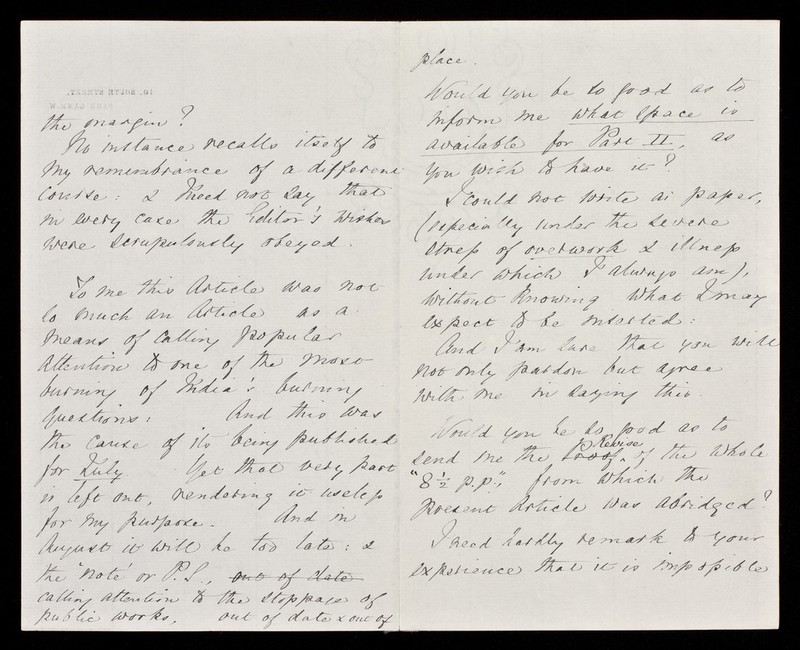 the margin?
No instance recalls itself to
my remembrance of a different
course: & I need not say that
in every case the Editor's wishes
were scrupulously obeyed.
To me this Article was not
so much an Article as a
means of calling popular
attention to one of the most
burning of India's burning
questions: And this was
the cause of its being published
for July. Yet that very part
is left out, rendering it useless
for my purpose. And in
August it will be too late: &
the "note" or P.S., out of date
calling attention to the stoppage of
public works, out of date & out of
place.
Would you be so good as to
inform me what space is
available for Part II, as
you wish to have it?
I could not write a paper,
(especially under the severe
stress of overwork & illness
under which I always am),
without knowing what I may
expect to be inserted:
And I am sure that you will
not only pardon but agree
with me in saying this.
Would you be so good as to
Revise
send me the proof of the whole
"8½ p.p.", from which the
present Article was abridged?
I need hardly remark to your
experience that it is impossible